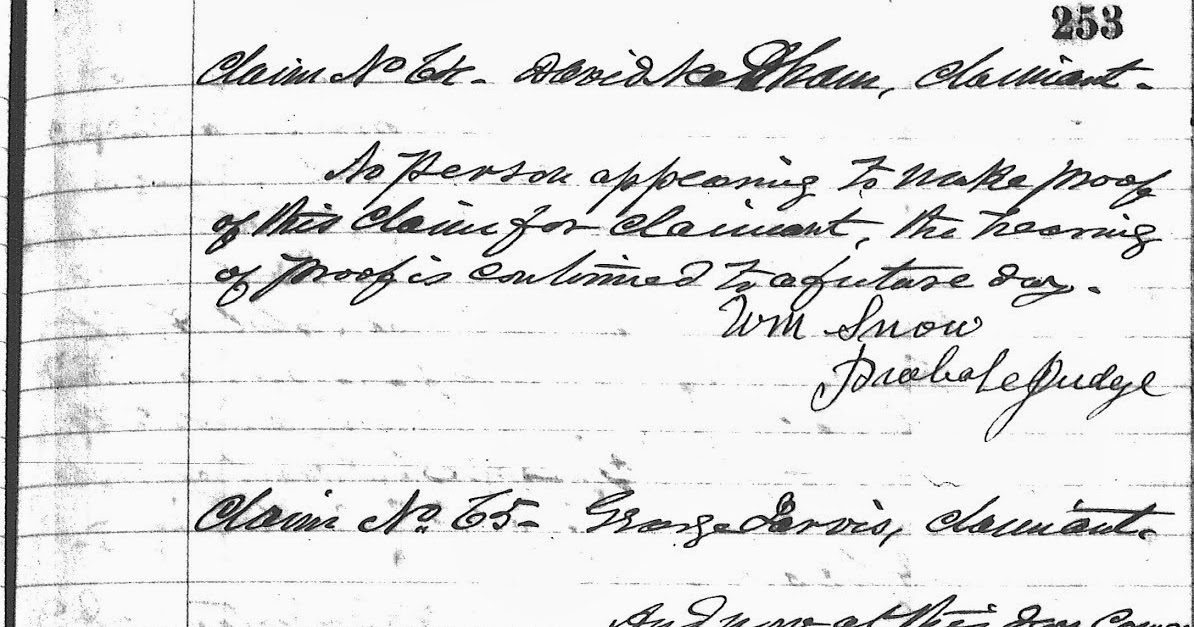 253
Claim No 64. David Needham, claimant.
No person appearing to make proof
of this claim for claimant, the hearing
of proof is continued to a future day.
Wm Snow
Probate Judge
Claim No. 65- George Jarvis, claimant.
And now at this day